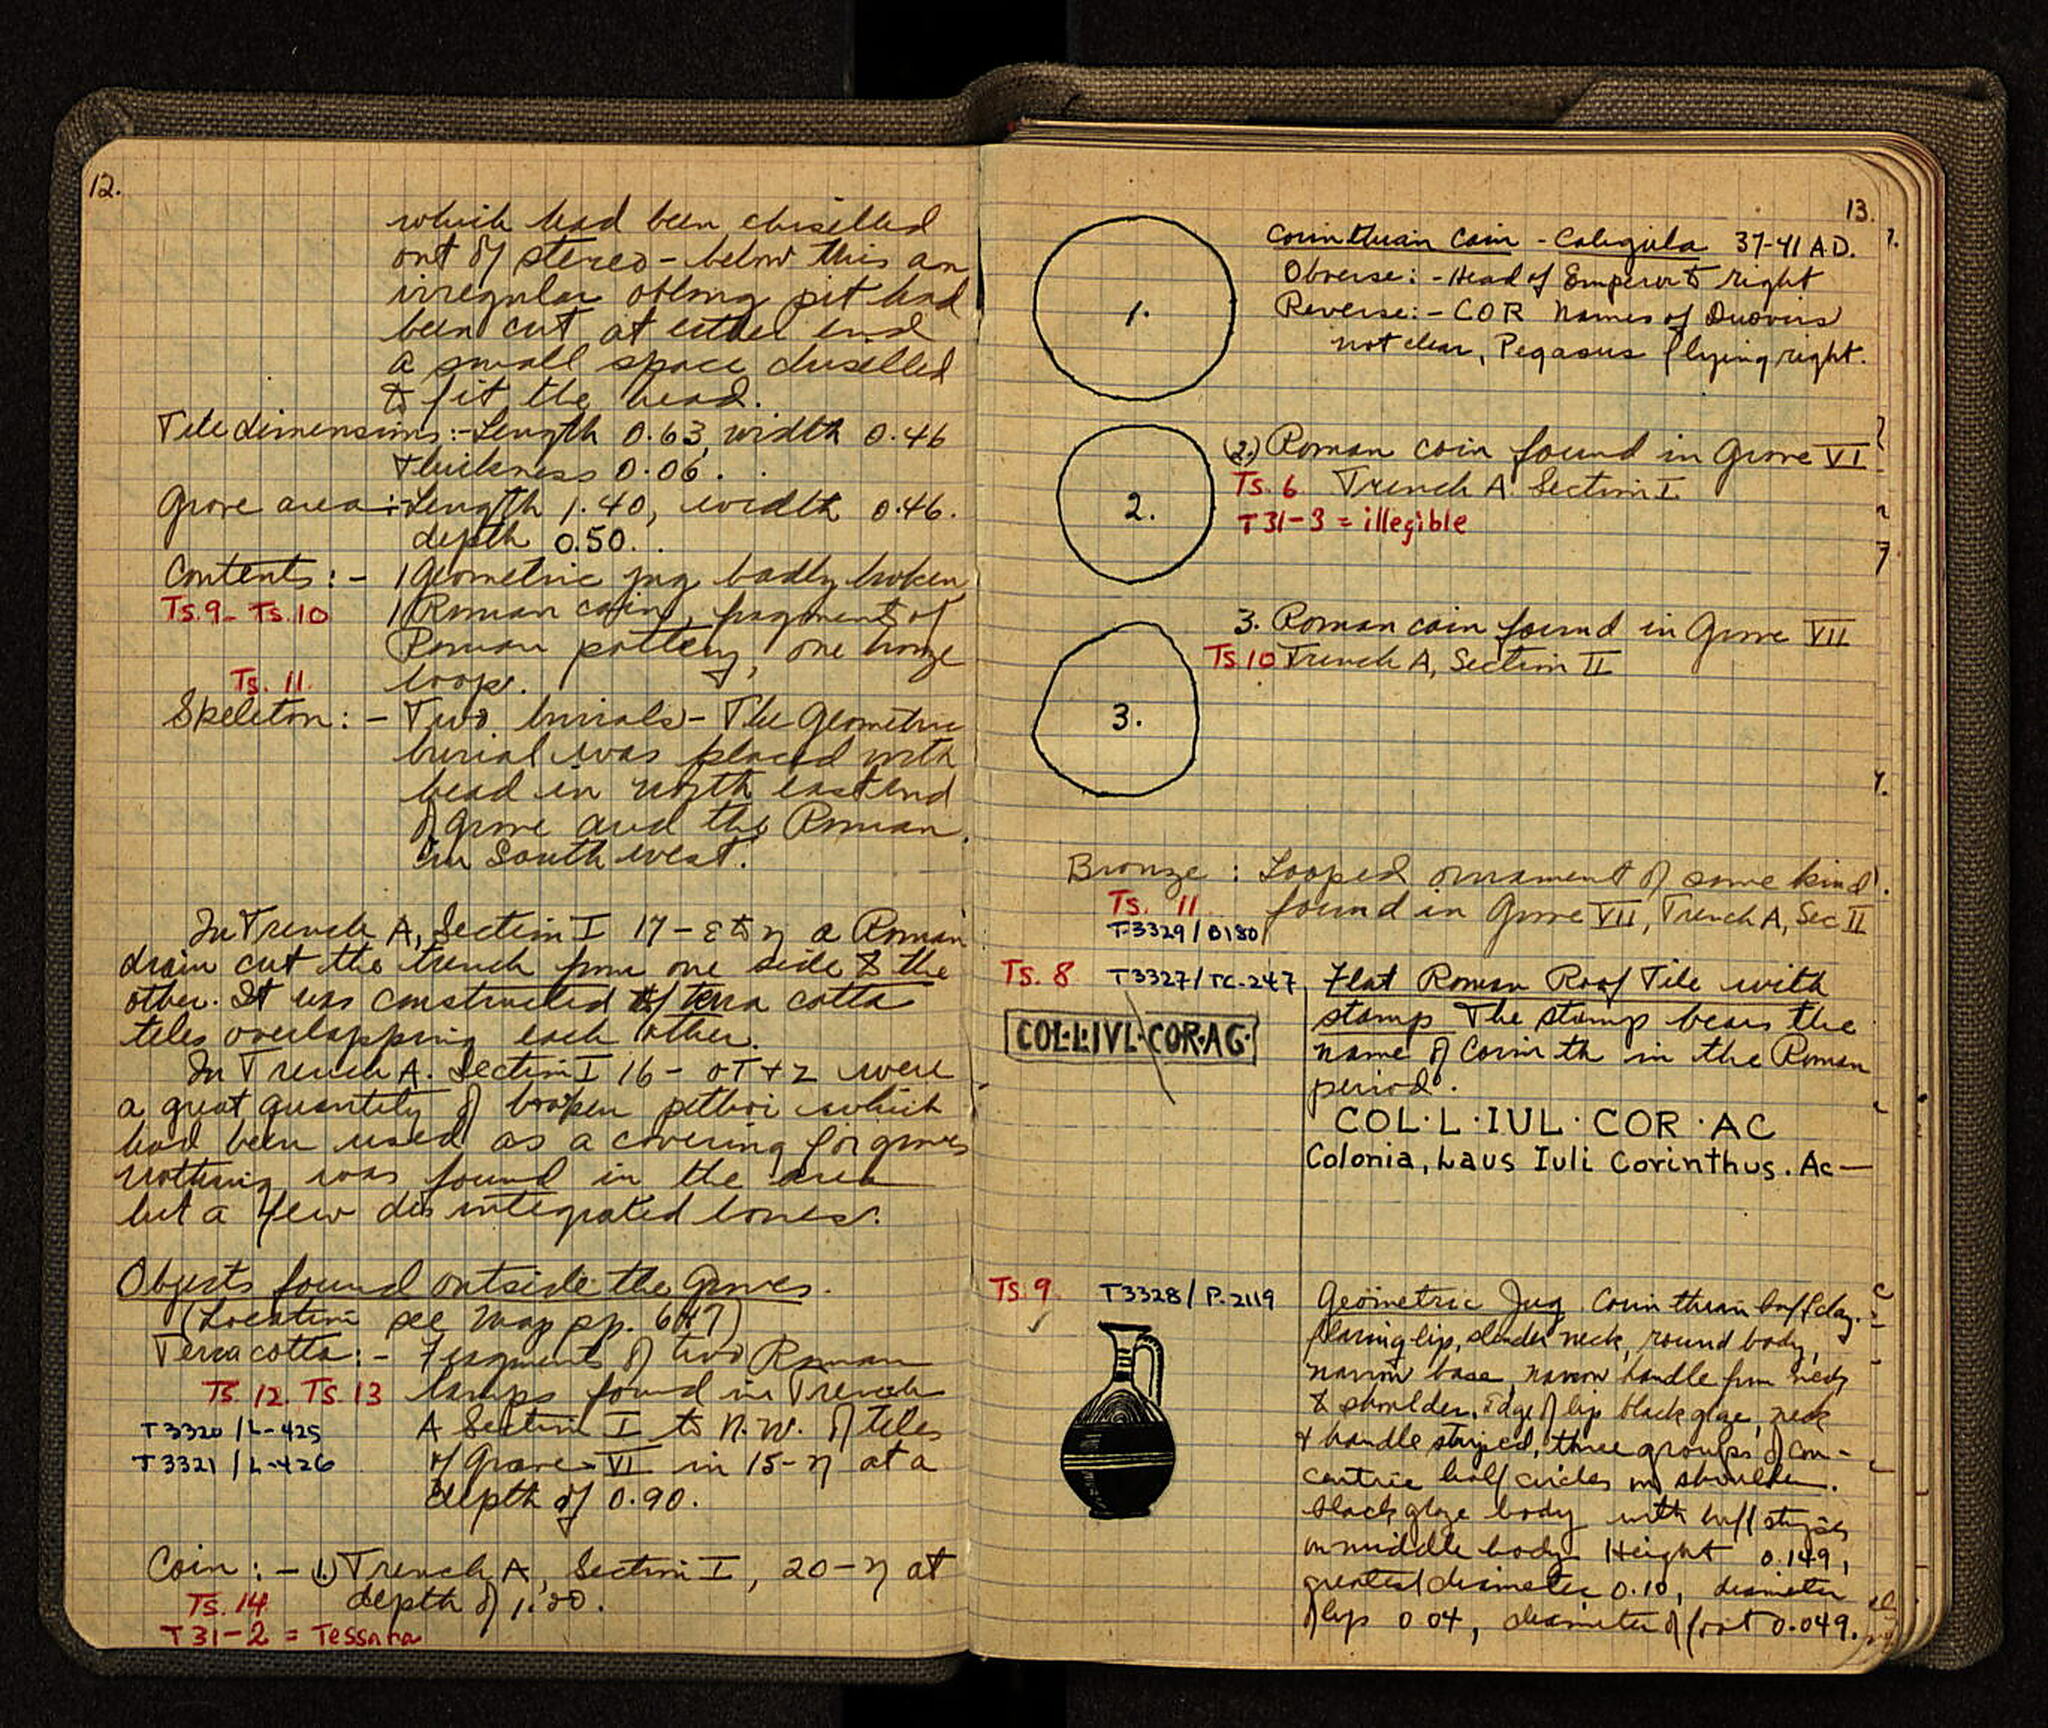 12.
which had been chiselled
out of stereo - below this an
irregular oblong pit had
been cut at either end
a small space chiselled
to fit the head.
Tile dimensions:- Length 0.63, width 0.46
thickness 0.06.
Grave area:- Length 1.40, width 0.46.
depth 0.50.
Contents:- 1 Geometric jug badly broken
Ts. 9- Ts. 10 1 Roman coin, fragment of
Roman pottery, one bronze
loop.
Ts. 11
Skeleton:- Two burials - The Geometric
burial was placed with
head in north east end
of grave and the Roman
in South west.
In Trench A, Section I 17 - ε to η a Roman
drain cut the trench from one side to the
other. It was constructed of terra cotta
tiles overlapping each other.
In Trench A. Section I 16 - were
a great quantity of broken pithoi which
had been used as a covering for graves
nothing was found in the area
but a few disintegrated bones.
Objects found outside the Graves.
(Location see map pp. 6+7)
Terra cotta:- Fragments of two Roman
Ts. 12. Ts. 13 lamps found in Trench
T3320/L-425 A Section I to N.W. of tiles
T3321/L-426 of Grave VI in 15-η at a
depth of 0.90.
Coin:- (1.) Trench A, Section I, 20-η at
Ts. 14 depth of
T31-2 = Tessara
13.
1.
Corinthian Coin - Caligula 37-41 A.D.
Obverse:- Head of Emperor to right
Reverse:- COR Names of Duovirs
not clear, Pegasus flying right.
2.
(2.) Roman coin found in Grave VI
Ts. 6 Trench A Section I
T31-3 = illegible
3.
3. Roman coin found in Grave VII
Ts 10 Trench A, Section II
Bronze: Looped ornament of some kind
Ts. 11 found in Grave VII, Trench A, Sec II
T3329/B180
Ts. 8 T3327/TC-247 Flat Roman Roof Tile with
stamp The stamp bears the
COL·L·IVL·COR·AG·
name of Corinth in the Roman
period.
COL·L·IUL·COR·AC
Colonia, Laus Iuli Corinthus. Ac—
Ts. 9 T3328/P-2119 Geometric Jug Corinthian buff clay.
flaring lip, slender neck, round body,
narrow base, narrow handle from neck
to shoulder. Edge of lip black glaze, neck
+ handle striped, three groups of con-
centric half circles on shoulder.
black glaze body with buff stripes
on middle body. Height 0.149,
greatest diameter 0.10, diameter
of lip 0.04, diameter of foot 0.049.